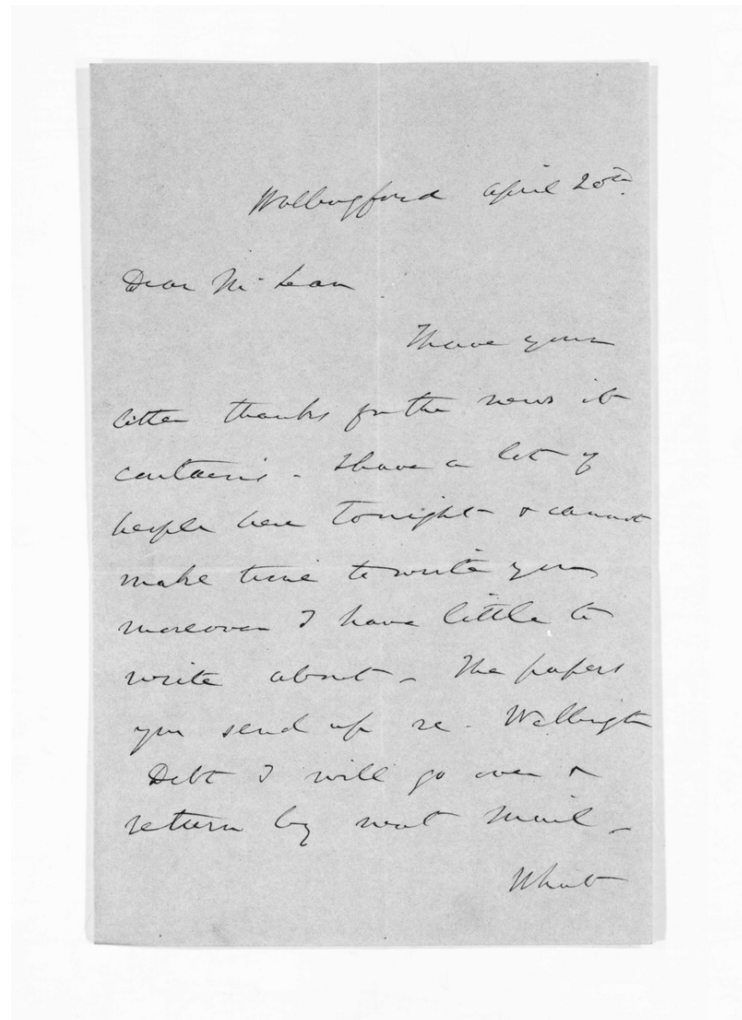 Wallingford April 20th.
Dear McLean
I have your
letter thanks for the news it
contains - I have a lot of
people here tonight & cannot
make time to write you
moreover I have little to
write about - The papers
you send up re. Wellington
Debt I will go over &
return by next mail -
What